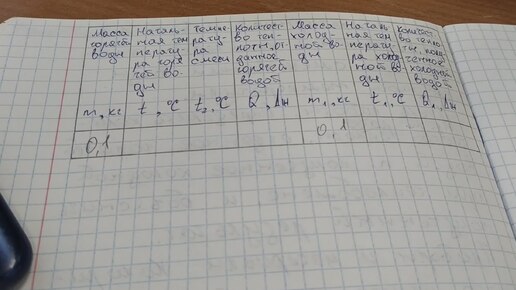 Масса
горячей
воды
m, кг
Началь-
ная тем
перату-
ра горя
чей во-
ды
t, °C
Темпе-
рату-
ра
смеси
t₂, °C
Количест-
во теп-
лоты, от
данное
горячей
водой
Q, Дж
Масса
холод-
ной во-
ды
m₁, кг
Началь
ная тем
перату-
ра холод
ной во-
ды
t₁, °C
Количест
во тепло-
ты, полу-
ченное
холодной
водой
Q₁, Дж
0,1
0,1